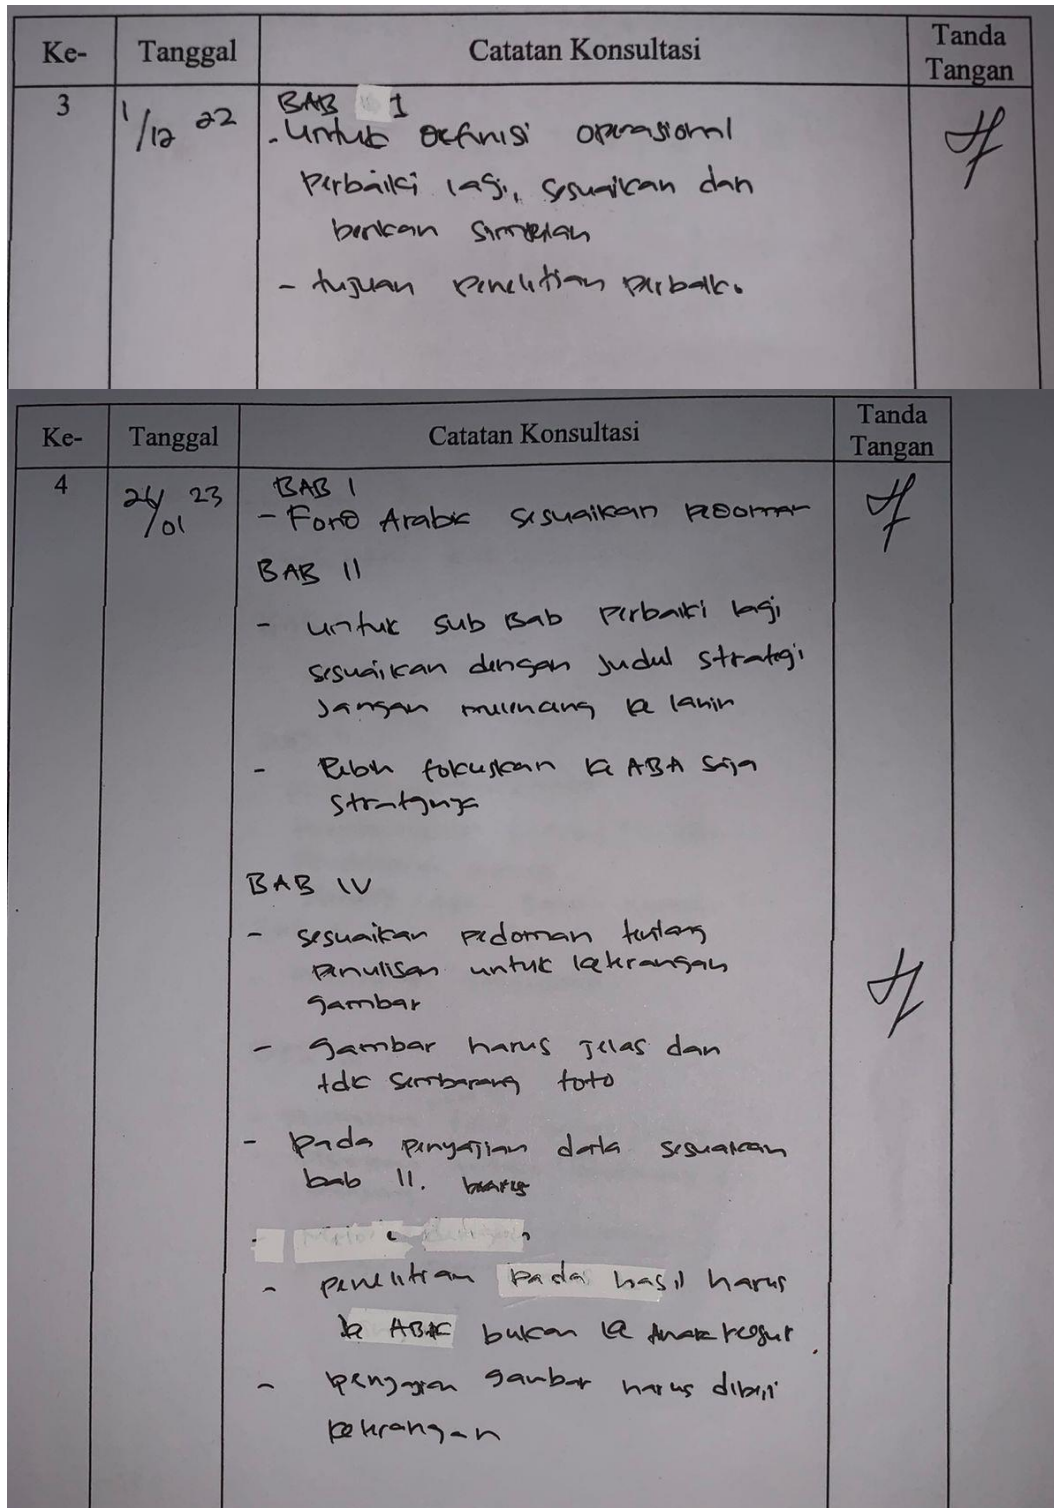 Ke- Tanggal Catatan Konsultasi Tanda Tangan
3 1/12 22 BAB I
- Untuk Definisi operasional
perbaiki lagi, sesuaikan dan
berikan simpulan
- tujuan penelitian perbaiki
Ke- Tanggal Catatan Konsultasi Tanda Tangan
4 24/01 23 BAB I
- Font Arabic sesuaikan pedoman
BAB II
- untuk sub Bab perbaiki lagi
sesuaikan dengan judul strategi
Jangan ke lain
- lebih fokuskan ke ABA saja
strateginya
BAB IV
- sesuaikan pedoman tentang
penulisan untuk keterangan
gambar
- gambar harus jelas dan
tdk sembarang foto
- pada penyajian data sesuaikan
bab II.
- penelitian pada hasil harus
ke ABK bukan ke Anak
- gambar harus diberi
keterangan